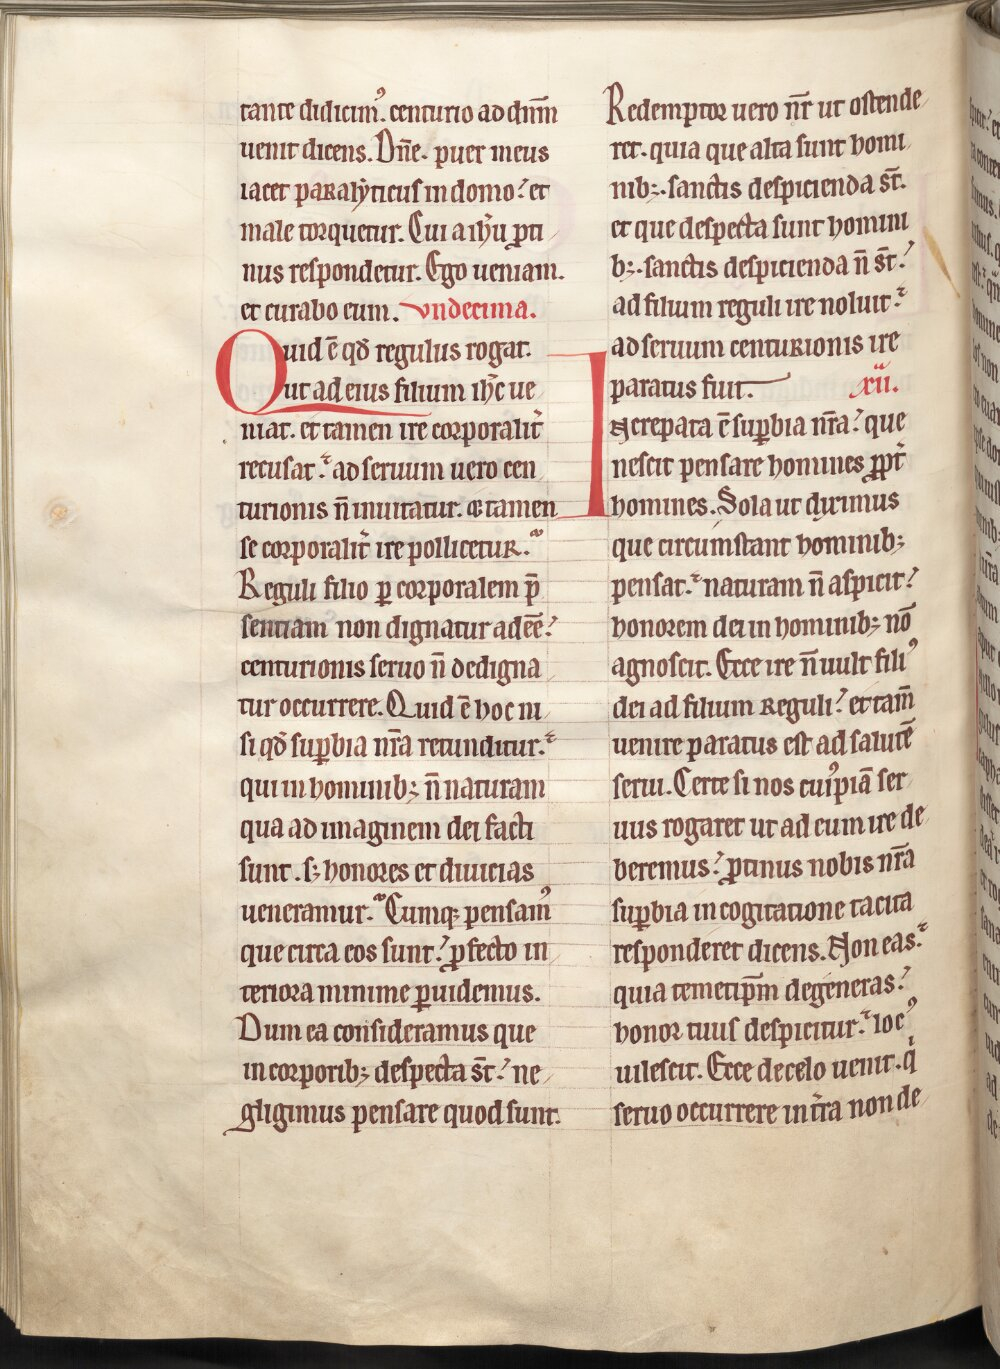 tante didicim᾽. centurio ad dnm̄
uenit dicens. Dn̄e. puer meus
iacet paralyticus in domo? et
male torquetur. Cui a ih̄u ꝓti
nus respondetur. Ego ueniam.
et curabo eum. vndecima.
Quid ē qđ regulus rogat.
ut ad eius filium ih̄c ue
niat. et tamen ire corporalit̄
recusat: ad seruum uero cen
turionis n̄ inuitatur. & tamen
se corporalit̄ ire pollicetur.
Reguli filio ꝑ corporalem p̄
sentiam non dignatur adeē?
centurionis seruo n̄ dedigna
tur occurrere. Quid ē hoc ni
si qđ suꝑbia nr̄a retunditur:
qui in hominib; n̄ naturam
qua ad imaginem dei facti
sunt. s; honores et diuicias
ueneramur. Cumq; pensam᾽
que circa eos sunt? ꝓfecto in
teriora minime ꝑuidemus.
Dum ea consideramus que
in corporib; despecta st̄? ne
gligimus pensare quod sunt.
Redemptor uero nr̄ ut ostende
ret. quia que alta sunt homi
nib;. sanctis despicienda st̄.
et que despecta sunt homini
b;. sanctis despicienda n̄ st̄?
ad filium reguli ire noluit:
ad seruum centurionis ire
paratus fuit. xii.
Increpata ē suꝑbia nr̄a? que
nescit pensare homines ꝓpt̄
homines. Sola ut diximus
que circumstant hominib;
pensat: naturam n̄ aspicit?
honorem dei in hominib; nō
agnoscit. Ecce ire n̄ uult fili᾽
dei ad filium reguli? et tam̄
uenire paratus est ad salutē
serui. Certe si nos cui᾽piā ser
uus rogaret ut ad eum ire de
beremus? ꝓtinus nobis nr̄a
suꝑbia in cogitatione tacita
responderet dicens. Non eas:
quia temetip̄m degeneras?
honor tuus despicitur: loc᾽
uilescit. Ecce de celo uenit. q̇
seruo occurrere in t̄ra non de